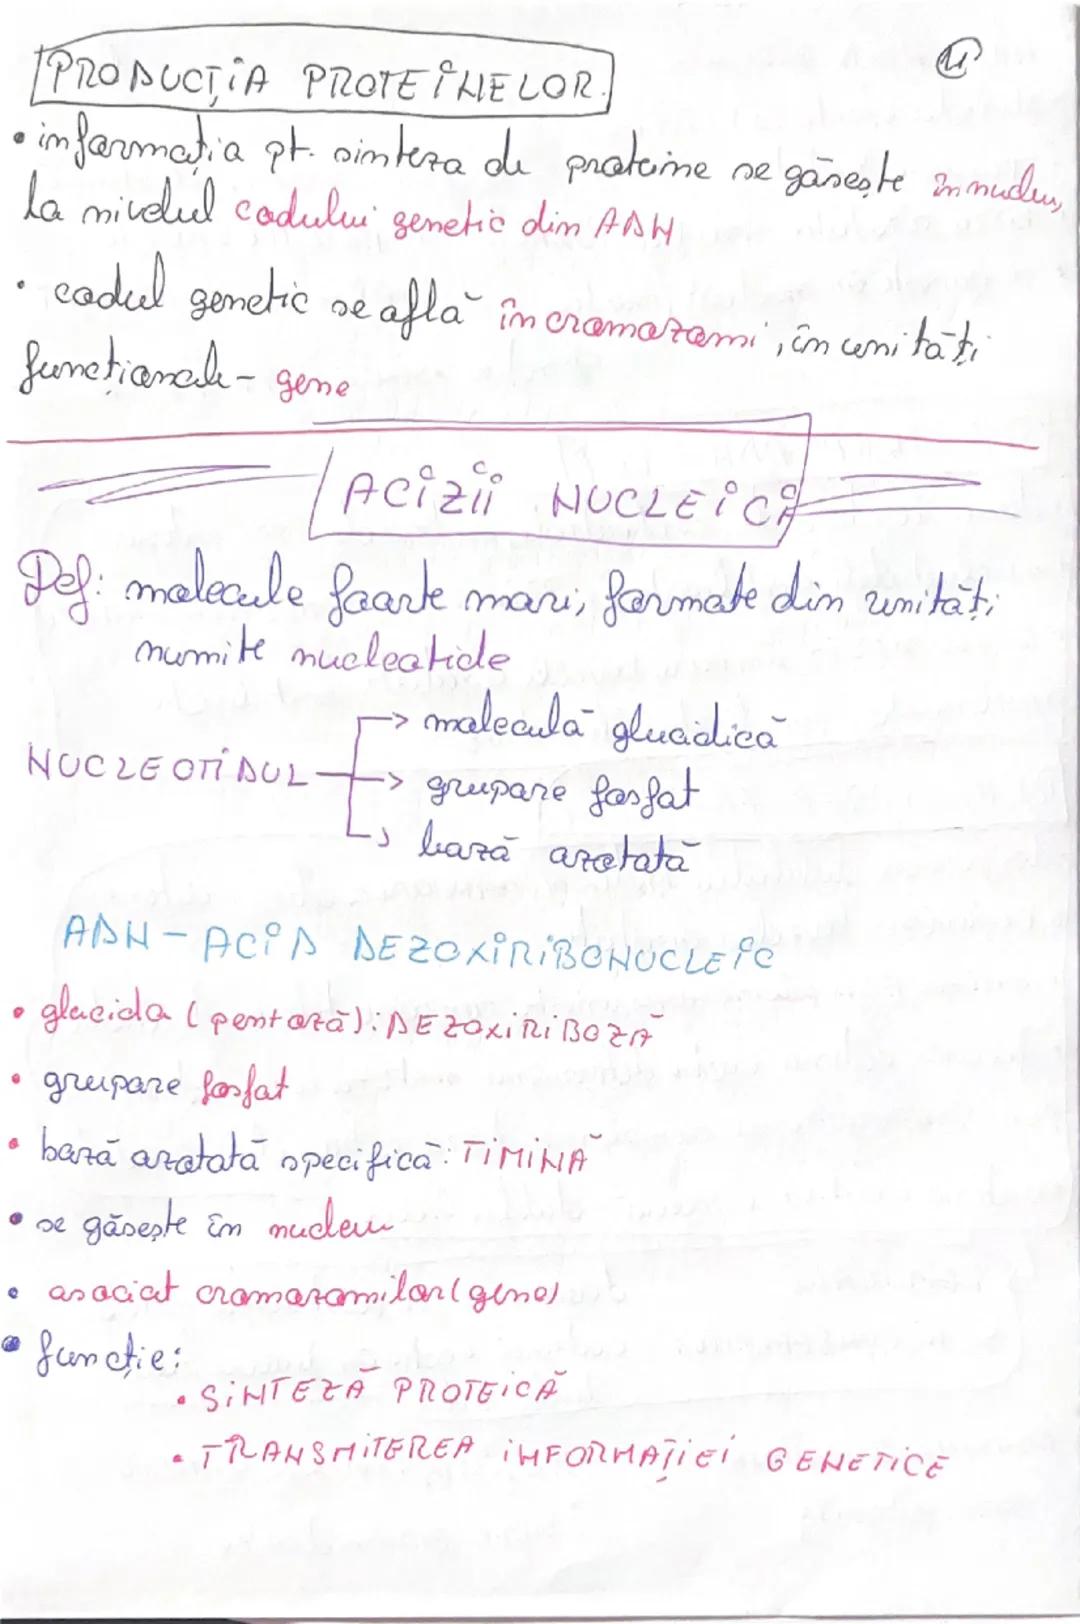 PRODUCȚIA PROTEINELOR.
• informația pt. sinteza de proteine se găsește în nucleu,
la nivelul codului genetic din ADN
• codul genetic se află în cromozomi, în unități
funcționale - gene
ACIZII NUCLEICI
Def: molecule foarte mari, formate din unități
numite nucleotide
→ moleculă glucidică
NUCLEOTIDUL → grupare fosfat
→ bază azotată
ADN - ACID DEZOXIRIBONUCLEIC
• glucida (pentoză): DEZOXIRIBOZĂ
• grupare fosfat
• bază azotată specifică: TIMINĂ
• se găsește în nucleu
• asociat cromozomilor (gene)
• funcție:
• SINTEZĂ PROTEICĂ
• TRANSMITEREA INFORMAȚIEI GENETICE